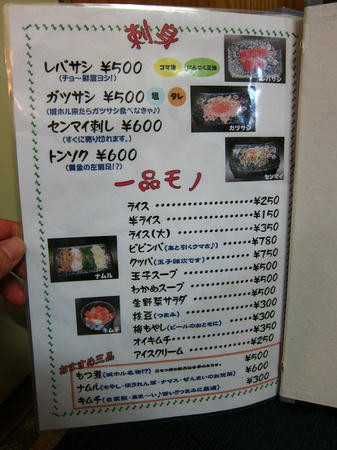 刺身
レバサシ ¥500 ゴマ油 にんにく正油
(チョ〜鮮度ヨシ!)
レバサシ
ガツサシ ¥500 塩 タレ
(城ホル来たらガツサシ食べなきゃ♪)
ガツサシ
センマイ刺し ¥600
(すぐに売り切れます。)
トンソク ¥600
(黄金の左前足!?)
センマイ
一品モノ
ライス ¥250
半ライス ¥150
ライス(大) ¥350
ビビンバ(あと引くウマさ♪) ¥780
クッパ(玉子雑炊です) ¥750
玉子スープ ¥500
わかめスープ ¥500
生野菜サラダ ¥500
枝豆(つまみ) ¥300
梅もやし(ビールのおともに) ¥350
オイキムチ ¥350
アイスクリーム ¥300
ナムル
キムチ
おすすめ三品
もつ煮(城ホル名物!?) ¥500
ナムル(もやし・ほうれん草・ナマス・ぜんまいのお惣菜) ¥600
キムチ(自家製・あま〜い♪旨い!!つまみに最適) ¥300